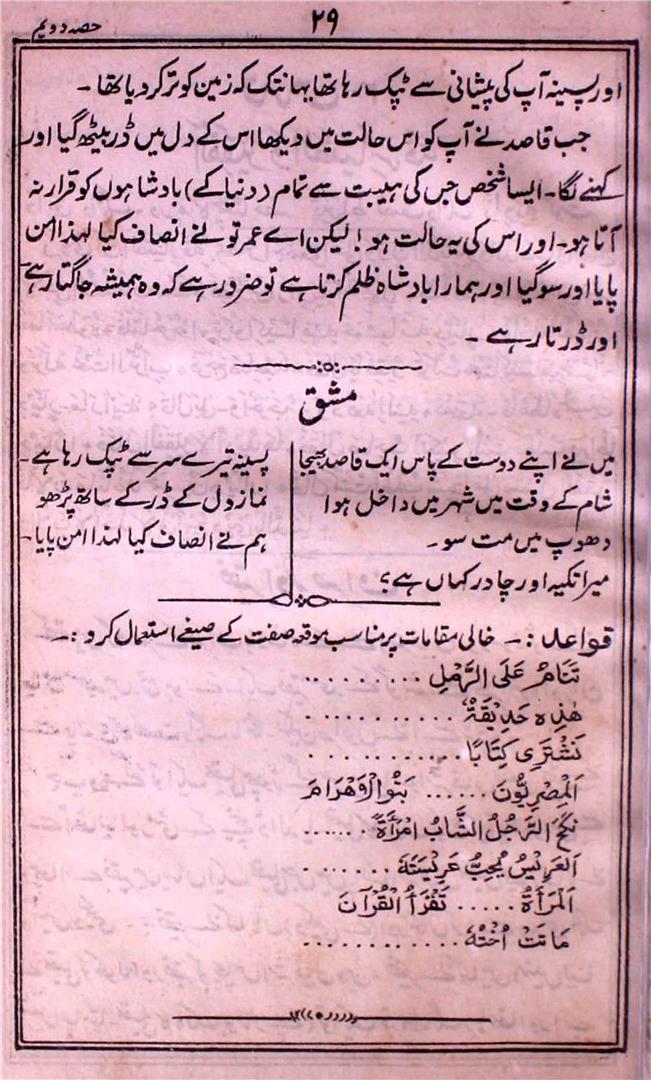 ۲۹
حصہ دویم
اور پسینہ آپ کی پیشانی سے ٹپک رہا تھا یہانتک کہ زمین کو تر کر دیا تھا ۔
جب قاصد نے آپ کو اس حالت میں دیکھا اس کے دل میں ڈر بیٹھ گیا اور
کہنے لگا ۔ ایسا شخص جس کی ہیبت سے تمام (دنیا کے) بادشاہوں کو قرار نہ
آتا ہو ۔ اور اس کی یہ حالت ہو ! لیکن اے عمر تو نے انصاف کیا لہذا امن
پایا اور سو گیا اور ہمارا بادشاہ ظلم کرتا ہے تو ضرور ہے کہ وہ ہمیشہ جاگتا رہے
اور ڈرتا رہے ۔
مشق
میں نے اپنے دوست کے پاس ایک قاصد بھیجا
شام کے وقت میں شہر میں داخل ہوا
دھوپ میں مت سو ۔
میرا تکیہ اور چادر کہاں ہے ؟
پسینہ تیرے سر سے ٹپک رہا ہے ۔
نماز دل کے ڈر کے ساتھ پڑھو
ہم نے انصاف کیا لہذا امن پایا ۔
قواعد :۔ خالی مقامات پر مناسب موقعہ صفت کے صیغے استعمال کرو :۔
تَنَامُ عَلَى الرَّمْلِ ..........
هٰذِهِ حَدِيْقَةٌ ..........
نَشْتَرِي كِتَابًا ..........
اَلْمِصْرِيُّونَ ...... بَنَوْا الْاَهْرَامَ
نَكَحَ الرَّجُلُ الشَّابُ امْرَأَةً ......
اَلْعَرِيْسُ يُحِبُّ عَرِيْسَتَهُ ........
اَلْمَرْأَةُ ..... تَقْرَأُ الْقُرْآنَ
مَاتَتْ اُخْتُهُ ............